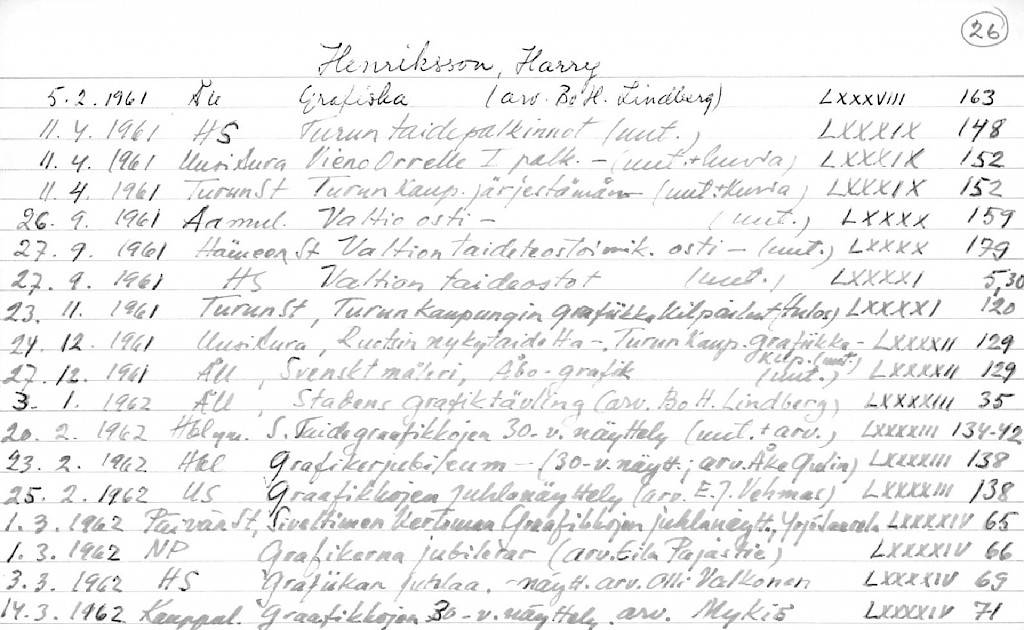 26
Henriksson, Harry
5.2.1961 ÅU Grafiska (arv. Bo H. Lindberg) LXXXVIII 163
11.4.1961 HS Turun taidepalkinnot (uut.) LXXXIX 148
11.4.1961 Uusi Aura Vieno Orrelle I palk. - (uut.+kuvia) LXXXIX 152
11.4.1961 TurunSt Turun kaup. järjestämän (uut.+kuvia) LXXXIX 152
26.9.1961 Aamul. Valtio osti - (uut.) LXXXX 159
27.9.1961 Hämeen St Valtion taideteostoimik. osti - (uut.) LXXXX 179
27.9.1961 HS Valtion taideostot (uut.) LXXXXI 5,30
23.11.1961 TurunSt, Turun kaupungin grafiikkakilpailut (tulos) LXXXXI 120
24.12.1961 Uusi Aura, nykytaidetta -, Turun kaup. grafiikka- LXXXXII 129
kilp. (uut.)
27.12.1961 ÅU, Svenskt måleri, Åbo-grafik (uut.) LXXXXII 129
3.1.1962 ÅU, Stadens grafiktävling (arv. Bo H. Lindberg) LXXXXIII 35
20.2.1962 Hbl ym. S. Taidegraafikkojen 30-v. näyttely (uut.+arv.) LXXXXIII 134-42
23.2.1962 Hbl Grafikerjubileum - (30-v. näytt.; arv. Åke Gulin) LXXXXIII 138
25.2.1962 US Graafikkojen juhlanäyttely (arv. E.J. Vehmas) LXXXXIII 138
1.3.1962 Päivän St, Siveltimen Kertomaa Graafikkojen juhlanäytt., LXXXXIV 65
1.3.1962 NP Grafikerna jubilerar (arv. Eila Pajastie) LXXXXIV 66
3.3.1962 HS Grafiikan juhlaa, - näytt. arv. Olli Valkonen LXXXXIV 69
14.3.1962 Kauppal. Graafikkojen 30-v. näyttely, arv. Mykis LXXXXIV 71